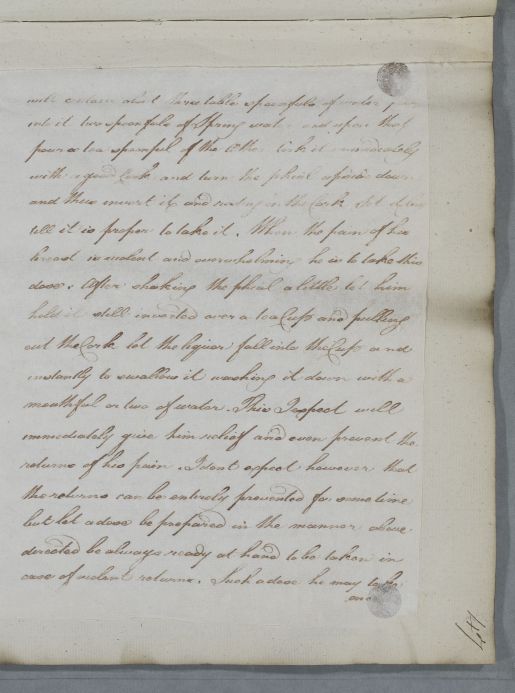 will contain about three table spoonfuls of water, pour
into it two spoonfuls of Spring water and upon that
pour a tea spoonful of the Æther cork it immediately
with a good Cork and turn the phial upside down
and thus invert it and resting on the Cork let it stand
till it is proper to take it. When the pain of his
breast is violent and overwhelming he is to take this
dose. After shaking the phial a little let him
hold it still inverted over a tea Cup and pulling
out the Cork let the liquor fall into the Cup and
instantly to swallow it washing it down with a
mouthful or two of water. This I expect will
immediately give him relief and even prevent the
returns of his pain. I dont expect however that
the returns can be entirely prevented for some time
but let a dose be prepared in the manner above
directed be always ready at hand to be taken in
case of violent returns. Such a dose he may take
once